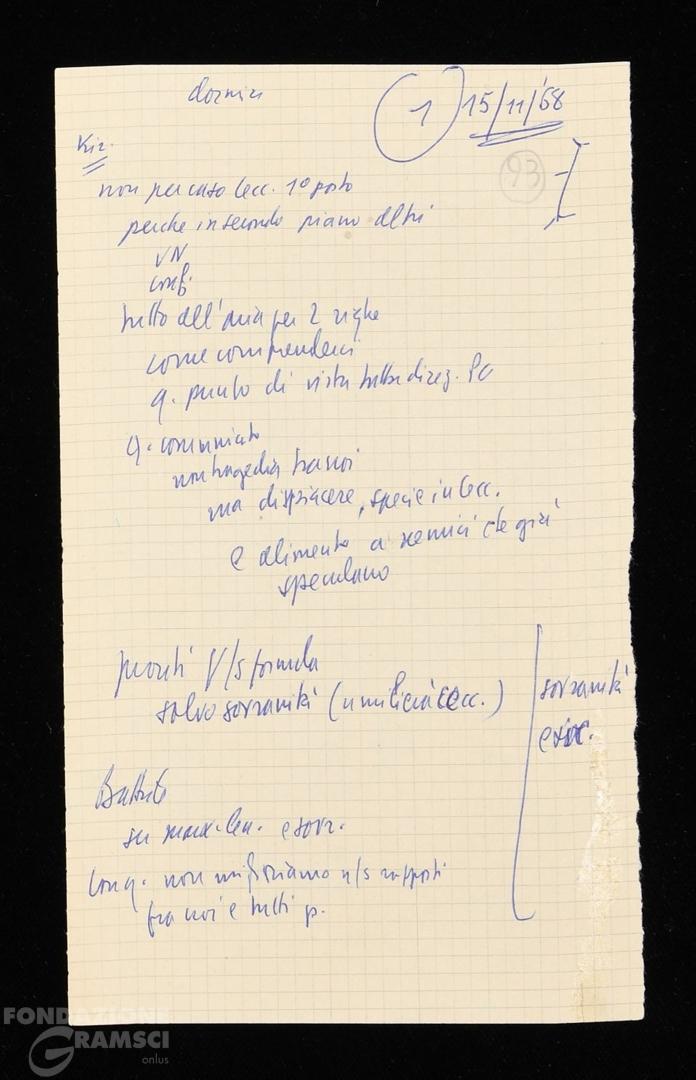 1 15/11/'68
Kir.
93
non per caso Cecc. 1º posto
perche in secondo piano altri
VN
conf.
tutto all'aria per 2 righe
come comprenderci
q. punto di vista tutta direz. PC
q. comunicato
non tragedia tra noi
ma dispiacere, specie in Cecc.
e alimento a nemici che già
speculano
pronti V/s formula
salvo sovranità (umilierà Cecc.)
sovranità
e soc.
Battute
su marx-len. e sovr.
Con q. non miglioriamo n/s rapporti
fra noi e tutti p.
FONDAZIONE
GRAMSCI
onlus